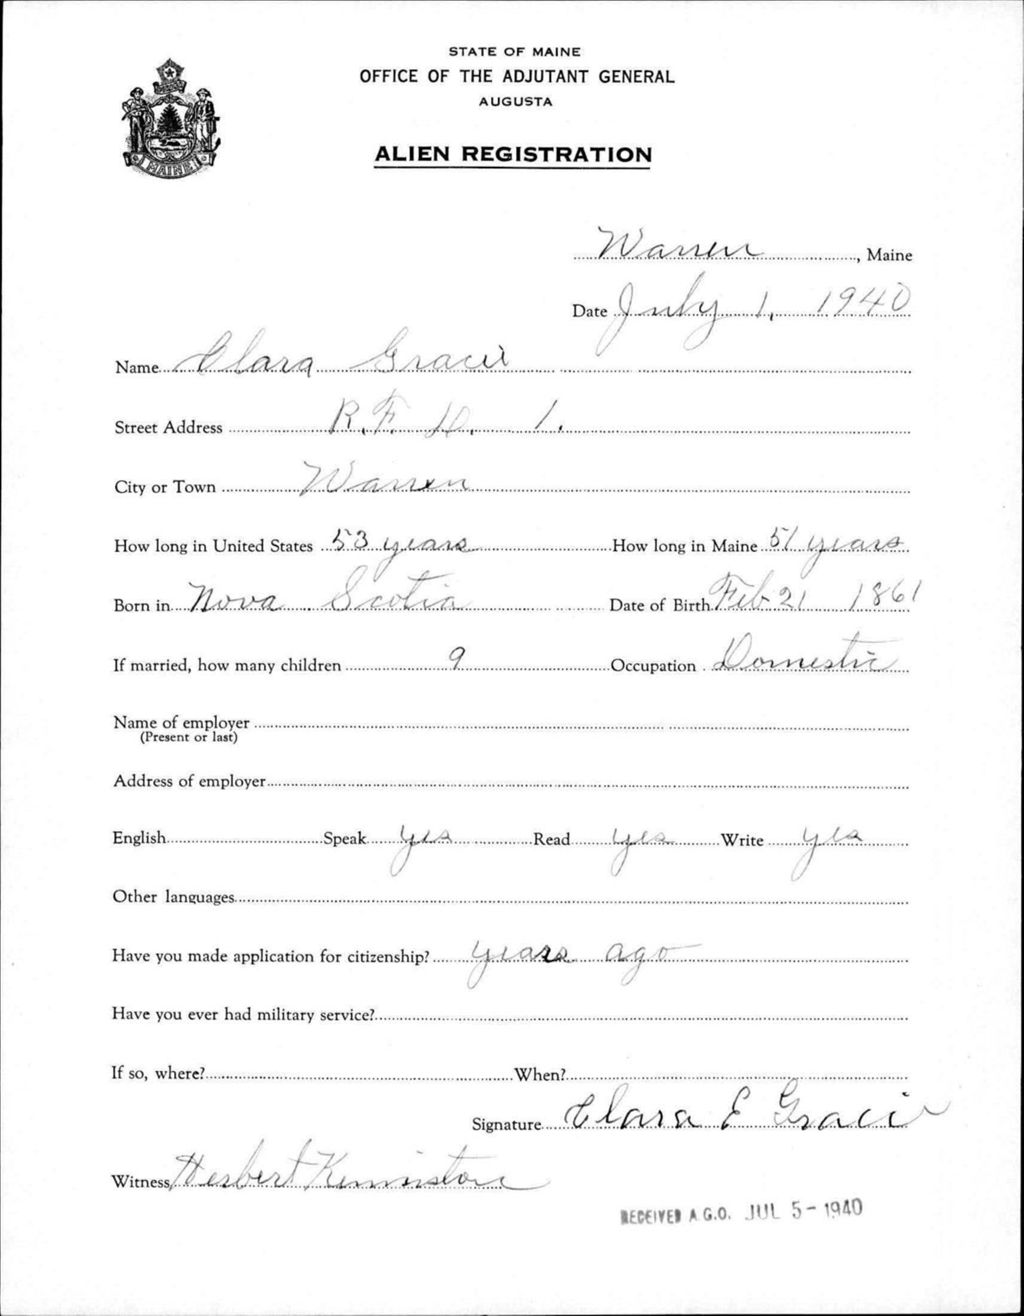 STATE OF MAINE
OFFICE OF THE ADJUTANT GENERAL
AUGUSTA
ALIEN REGISTRATION
MAINE
Warren, Maine
Date July 1, 1940
Name Clara Gracie
Street Address R. F. D. 1.
City or Town Warren
How long in United States 53 years How long in Maine 51 years
Born in Nova Scotia Date of Birth Feb 21 1861
If married, how many children 9 Occupation Domestic
Name of employer
(Present or last)
Address of employer
English Speak yes Read yes Write yes
Other languages
Have you made application for citizenship? years ago
Have you ever had military service?
If so, where? When?
Signature Clara E Gracie
Witness Herbert Kenniston
RECEIVED A.G.O. JUL 5 - 1940